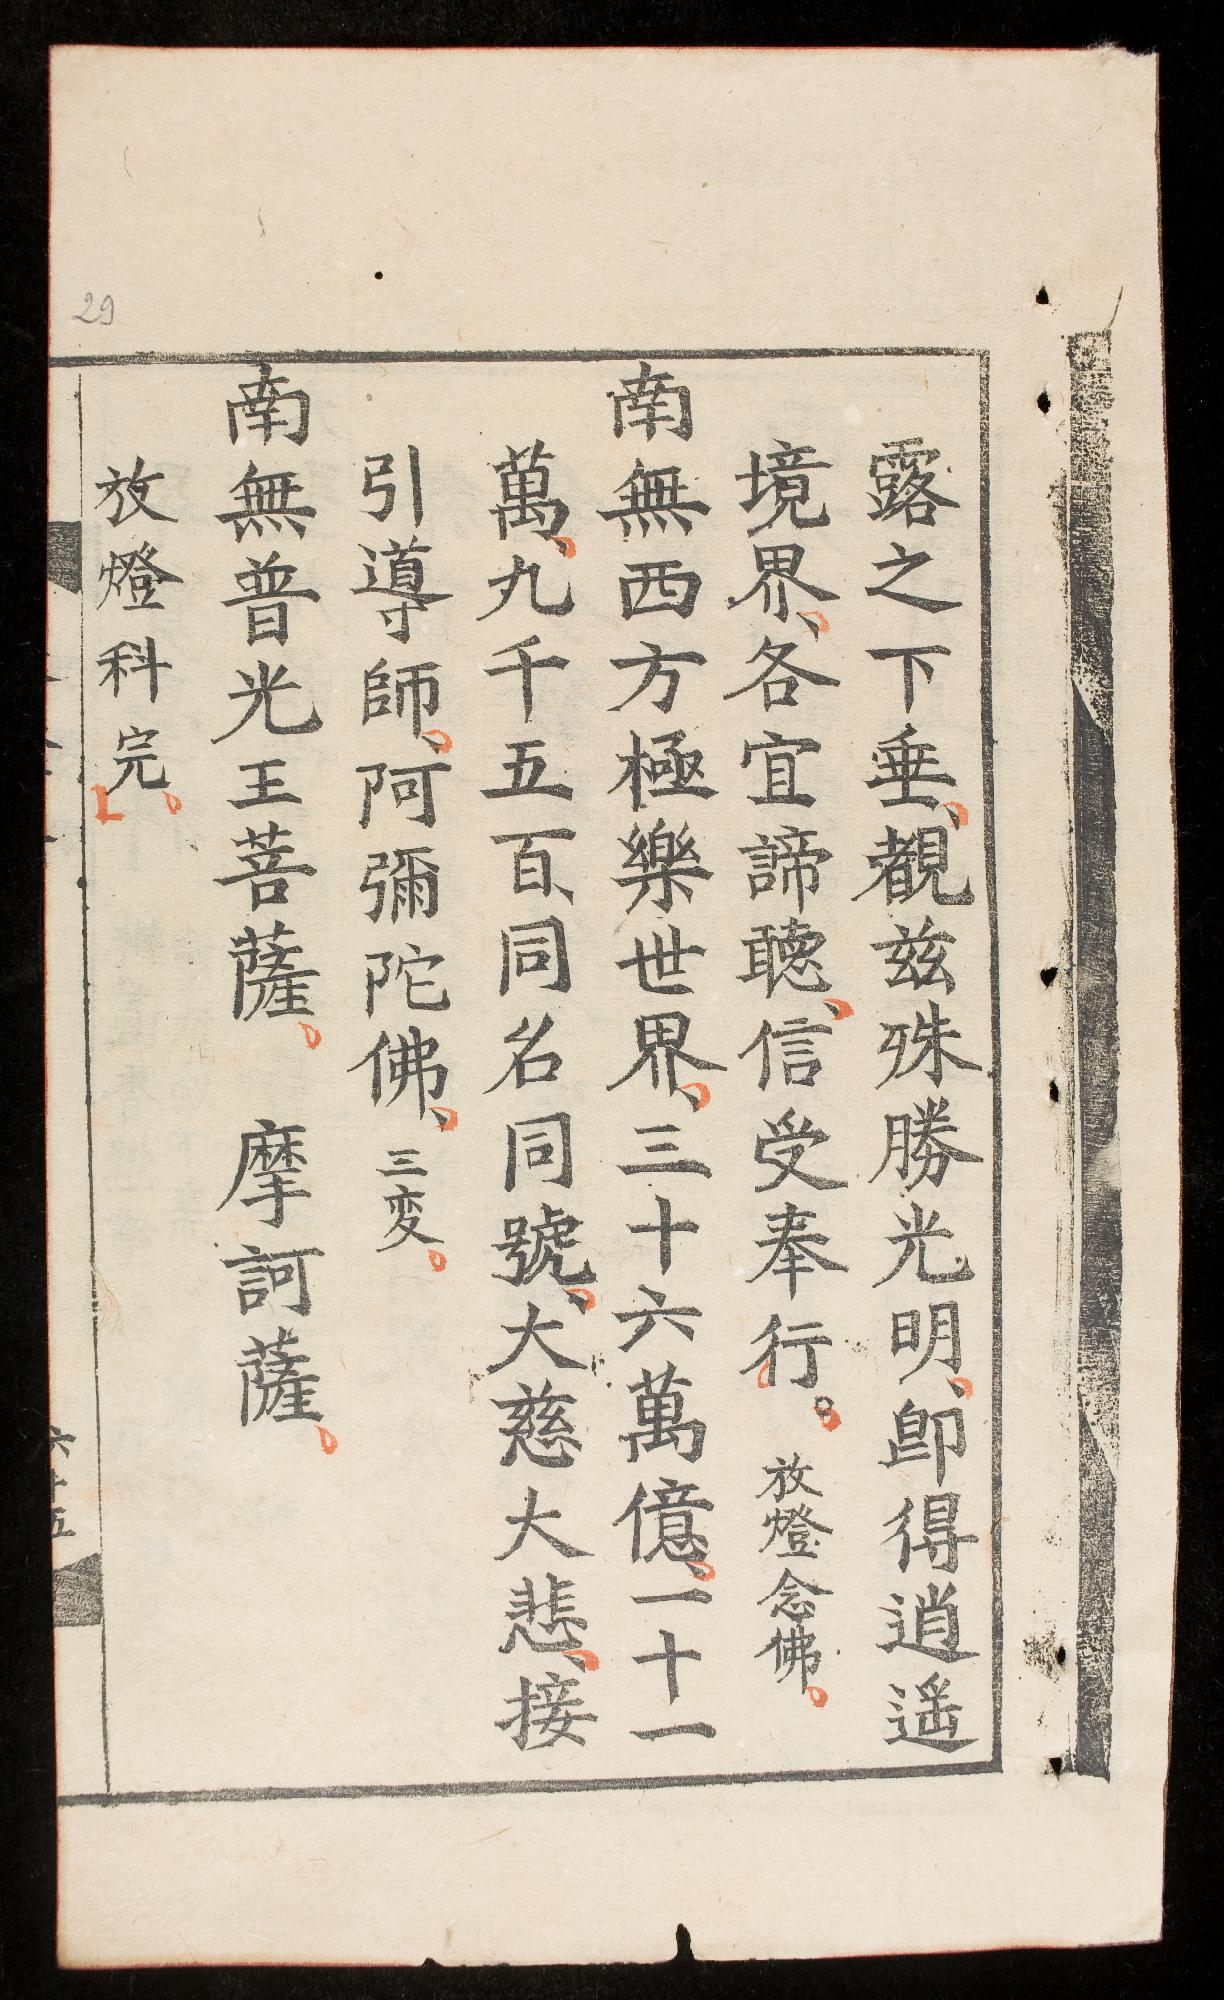 露之下垂、覩兹殊勝光明、卽得逍遥
境界、各宜諦聴、信受奉行。 放燈念佛
南無西方極樂世界、三十六萬億、一十一
萬、九千五百、同名同號、大慈大悲、接
引導師、阿彌陀佛、 三変
南無普光王菩薩 摩訶薩
放燈科完
六十五
29